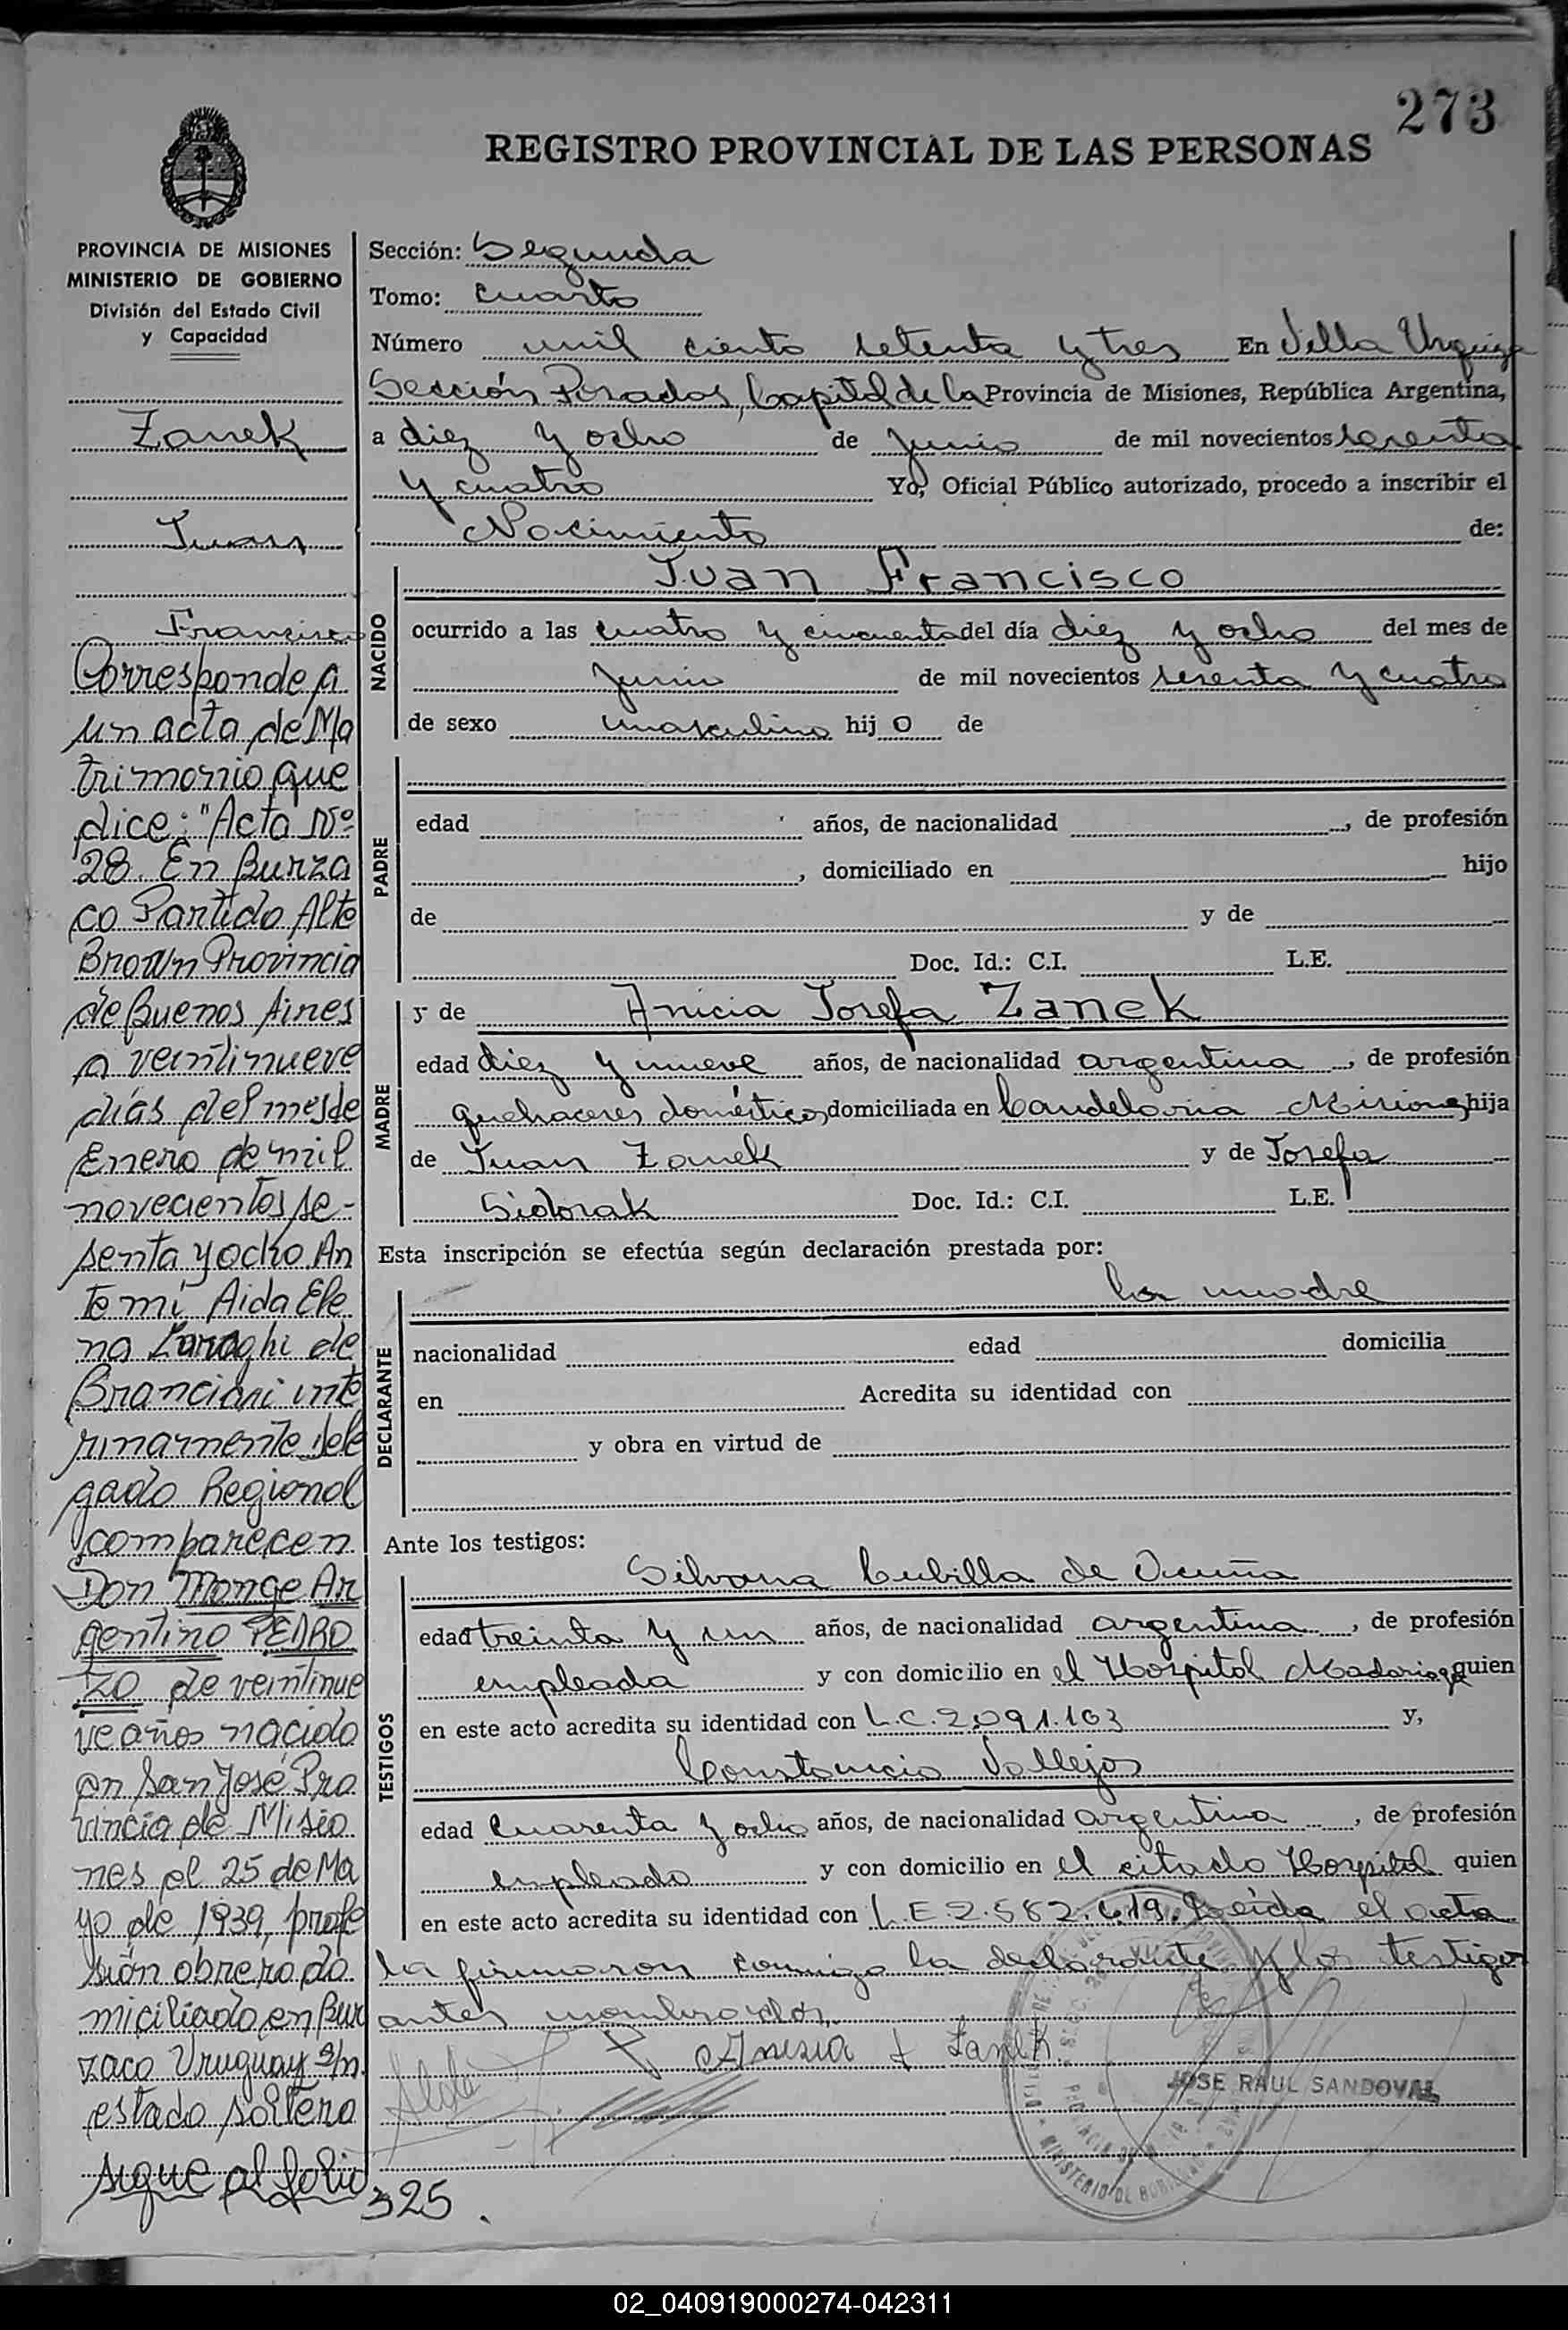 273
REGISTRO PROVINCIAL DE LAS PERSONAS
PROVINCIA DE MISIONES
MINISTERIO DE GOBIERNO
División del Estado Civil
y Capacidad
Zanek
Juan
Francisco
Corresponde a
un acta de Ma
trimonio que
dice: "Acta Nº
28. En Burza
co Partido Alte
Brown Provincia
de Buenos Aires
a veintinueve
días del mes de
Enero de mil
novecientos se-
senta y ocho An
te mí Aida Ele
na Zaraghi de
Branciani inte
rinamente dele
gado Regional
comparecen
Don Monge Ar
gentino PEDRO
ZO de veintinue
ve años nacido
en San José Pro
vincia de Misio
nes el 25 de Ma
yo de 1939, profe
sión obrero do
miciliado en Bur
zaco Uruguay s/n.
estado soltero
sigue al folio
325.
Sección: Segunda
Tomo: Cuarto
Número mil ciento setenta y tres En Villa Urquiza
Sección Posadas, Capital de la Provincia de Misiones, República Argentina,
a diez y ocho de junio de mil novecientos sesenta
y cuatro Yo, Oficial Público autorizado, procedo a inscribir el
Nacimiento de:
NACIDO
Juan Francisco
ocurrido a las cuatro y cincuenta del día diez y ocho del mes de
junio de mil novecientos sesenta y cuatro
de sexo masculino hij o de
PADRE
edad años, de nacionalidad , de profesión
, domiciliado en hijo
de y de
Doc. Id.: C.I. L.E.
MADRE
y de Anicia Josefa Zanek
edad diez y nueve años, de nacionalidad argentina, de profesión
quehaceres domésticos domiciliada en Candelaria Misiones hija
de Juan Zanek y de Josefa
Sidorak Doc. Id.: C.I. L.E.
Esta inscripción se efectúa según declaración prestada por:
DECLARANTE
la madre
nacionalidad edad domicilia
en Acredita su identidad con
y obra en virtud de
Ante los testigos:
TESTIGOS
Silvana Cubilla de Acuña
edad treinta y un años, de nacionalidad argentina, de profesión
empleada y con domicilio en el Hospital Madariaga quien
en este acto acredita su identidad con L.C. 2.091.103 y,
Constancio Vallejos
edad cuarenta y ocho años, de nacionalidad argentina, de profesión
empleado y con domicilio en el citado Hospital quien
en este acto acredita su identidad con L.E 2.582.619. Leída el acta
la firmaron conmigo la declarante y los testigos
antes nombrados.
Anisia J Zanek
JOSE RAUL SANDOVAL
02_040919000274-042311